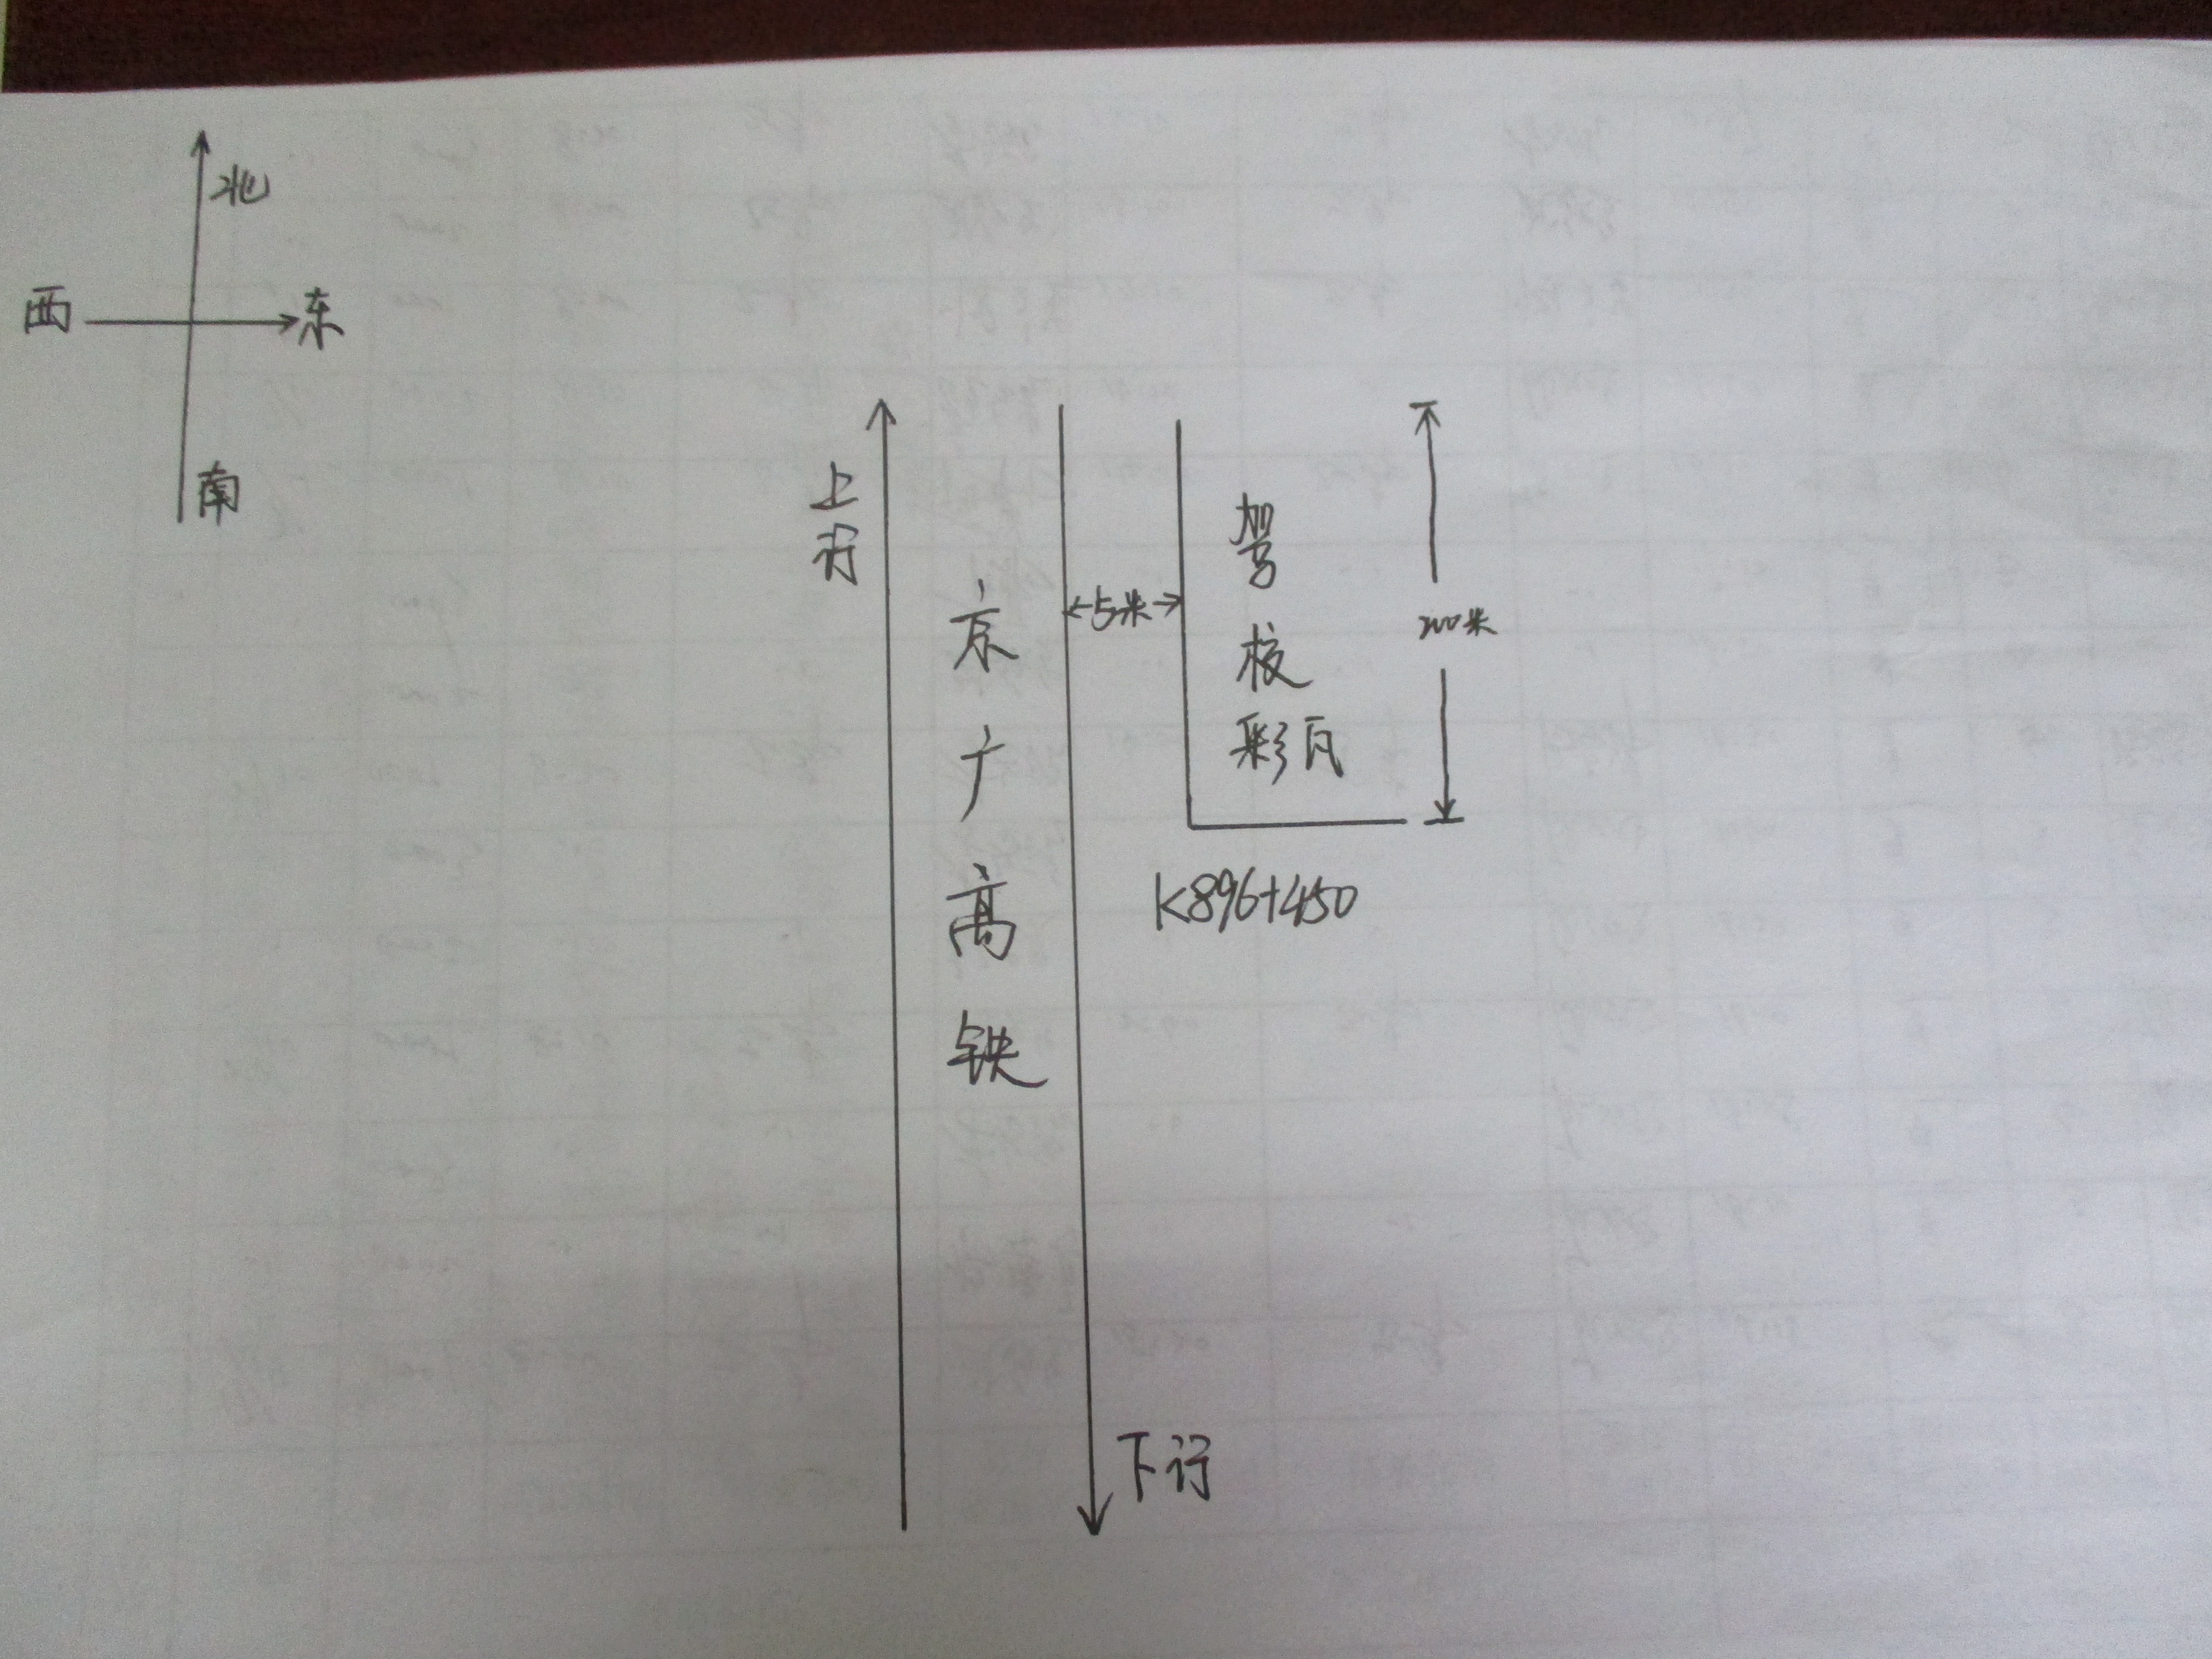 北
西
东
南
上行
京广高铁
5米
驾校
彩瓦
200米
K896+450
下行